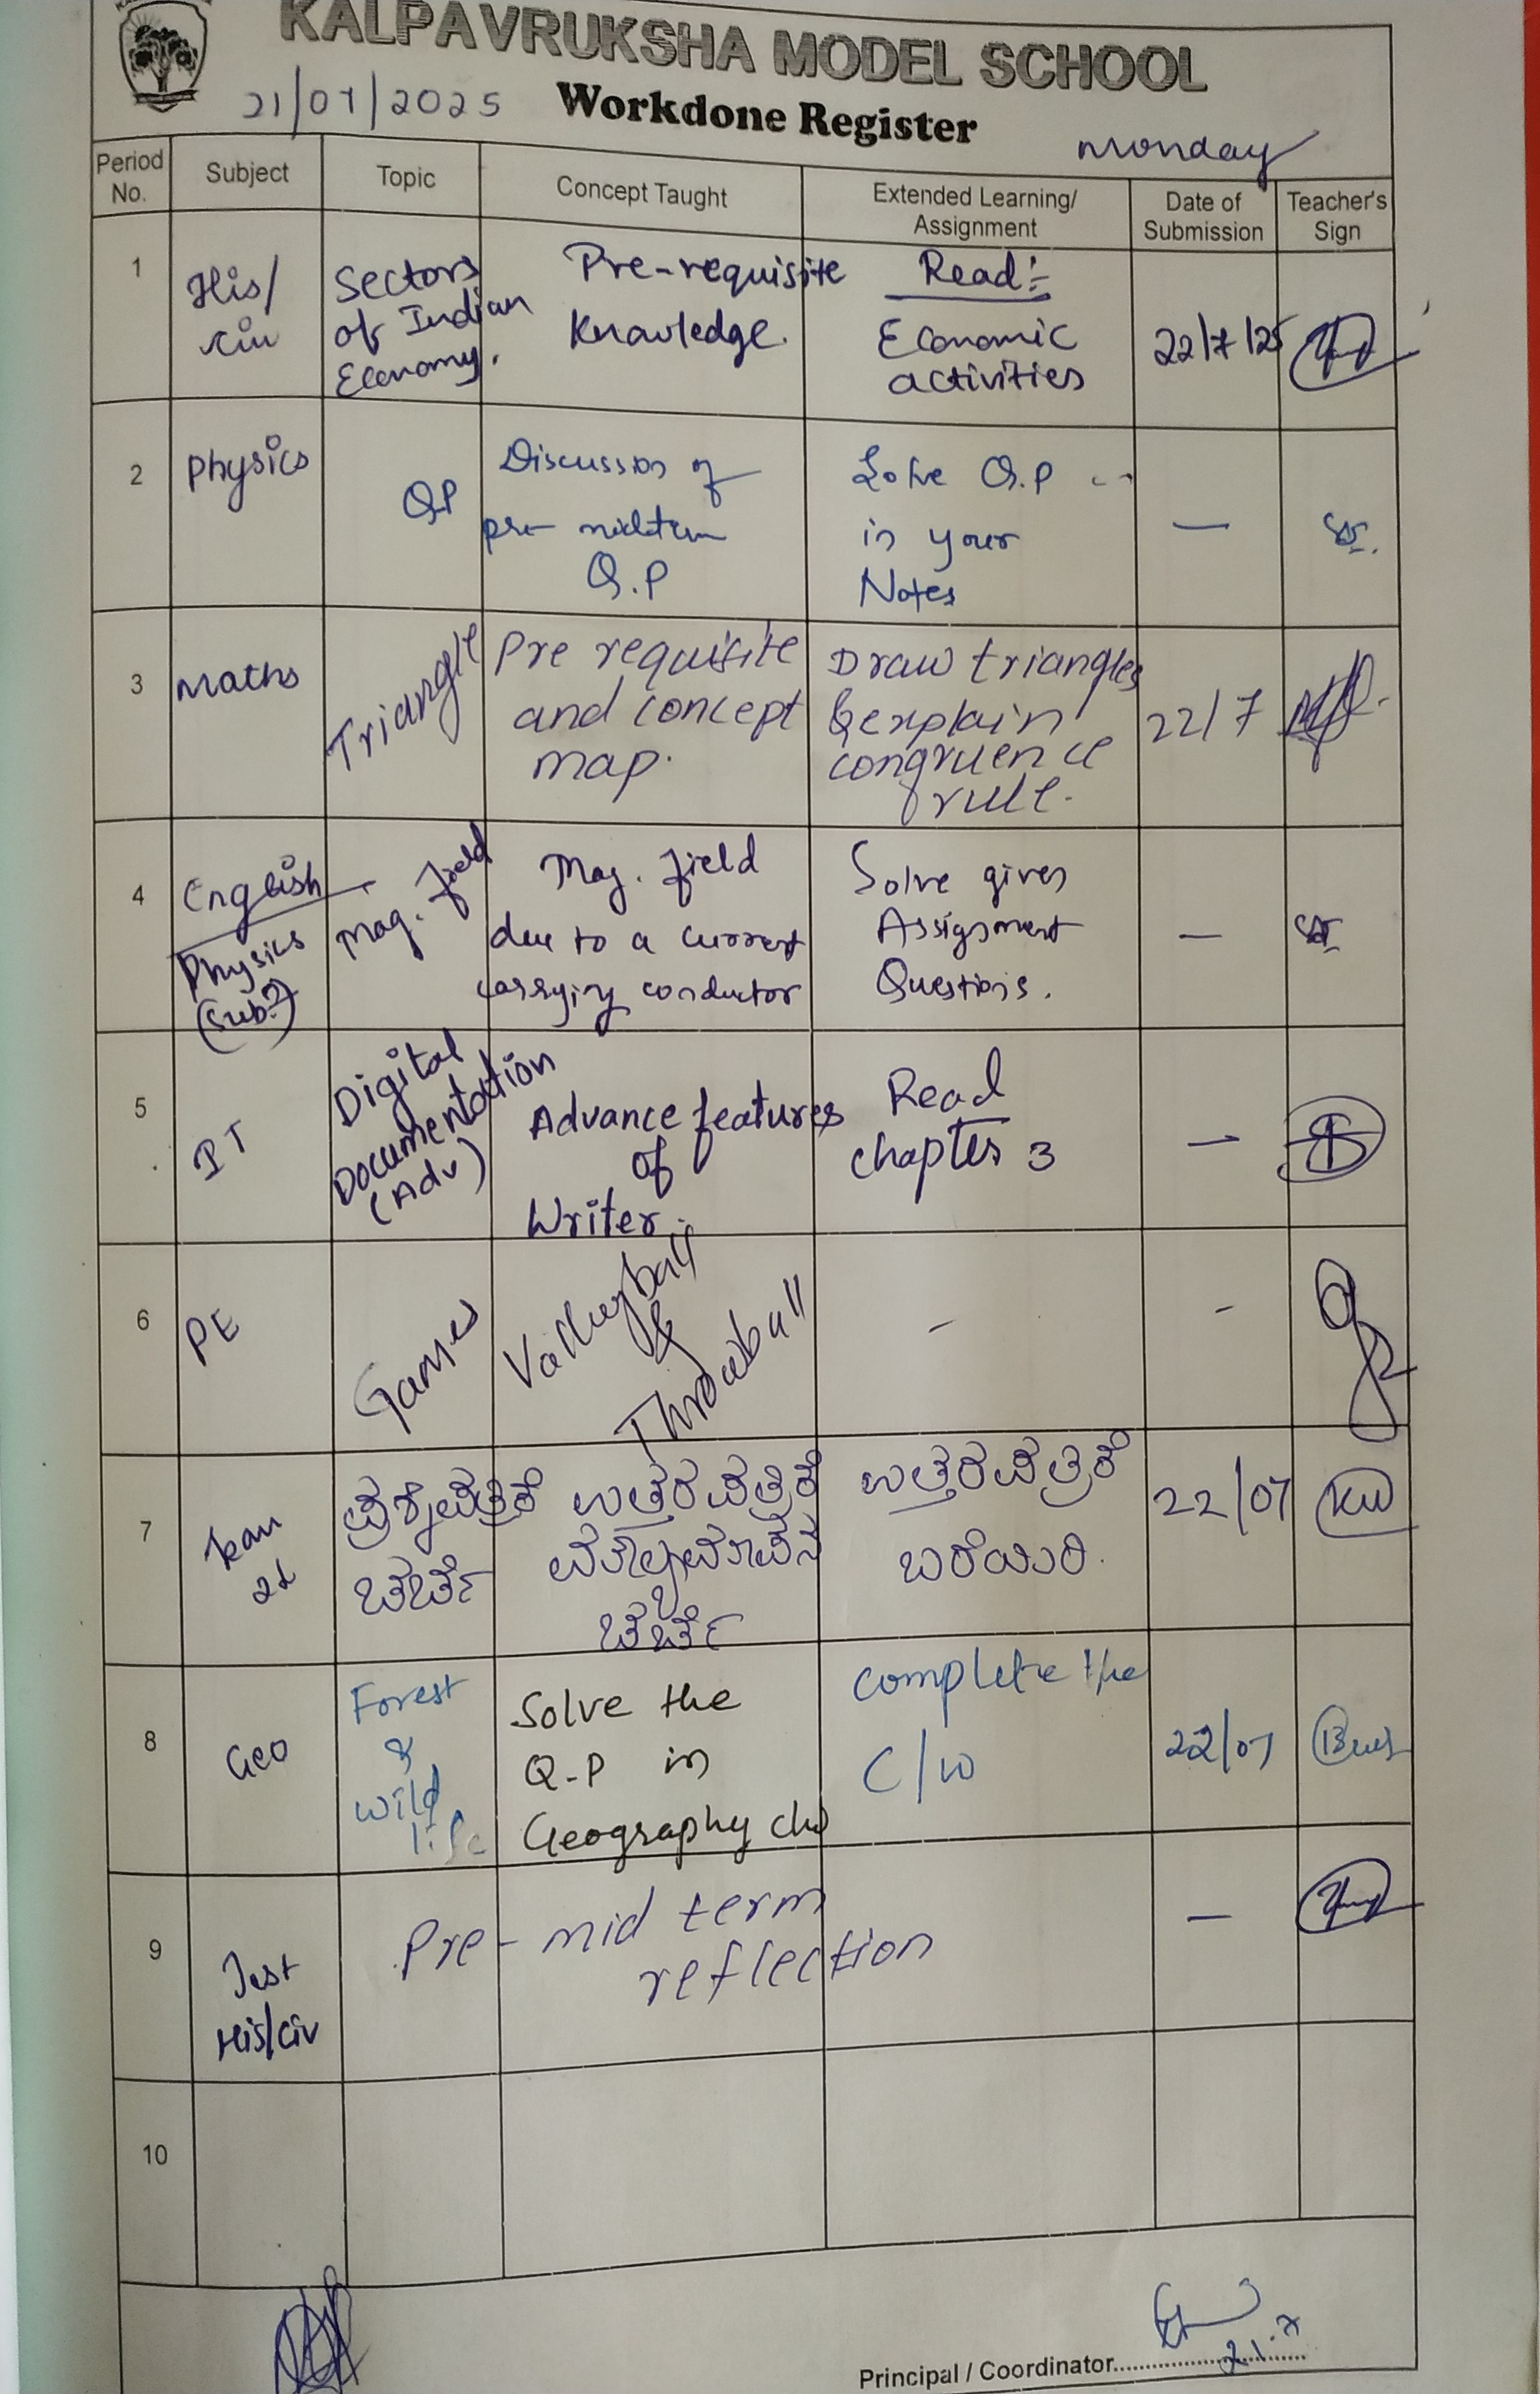 KALPAVRUKSHA MODEL SCHOOL
21/07/2025
Workdone Register
Monday
Period No.
Subject
Topic
Concept Taught
Extended Learning/ Assignment
Date of Submission
Teacher's Sign
1
His/
civ
Sectors
of Indian
Economy.
Pre-requisite
Knowledge.
Read:-
Economic
activities
22/7/25
2
Physics
QP
Discussion of
pre-midterm
Q.P
Solve Q.P
in your
Notes
—
3
Maths
Triangle
Pre requisite
and concept
map.
Draw triangles
& explain
congruence
rule.
22/7
4
English
Physics
(Sub?)
Mag. field
Mag. field
due to a current
carrying conductor
Solve given
Assignment
Questions.
—
5
IT
Digital
Documentation
(Adv)
Advance features
of
Writer.
Read
chapter 3
—
6
PE
Games
Volleyball
&
Throwball
-
-
7
Kan
2L
ಪ್ರಶ್ನೆಪತ್ರಿಕೆ
ಚರ್ಚೆ
ಉತ್ತರಪತ್ರಿಕೆ
ಮೌಲ್ಯಮಾಪನ
ಚರ್ಚೆ
ಉತ್ತರಪತ್ರಿಕೆ
ಬರೆಯಿರಿ.
22/07
8
Geo
Forest
&
wild
life
Solve the
Q.P in
Geography cw
complete the
C/W
22/07
9
Test
His/Civ
Pre-mid term
reflection
—
10
Principal / Coordinator
21.7